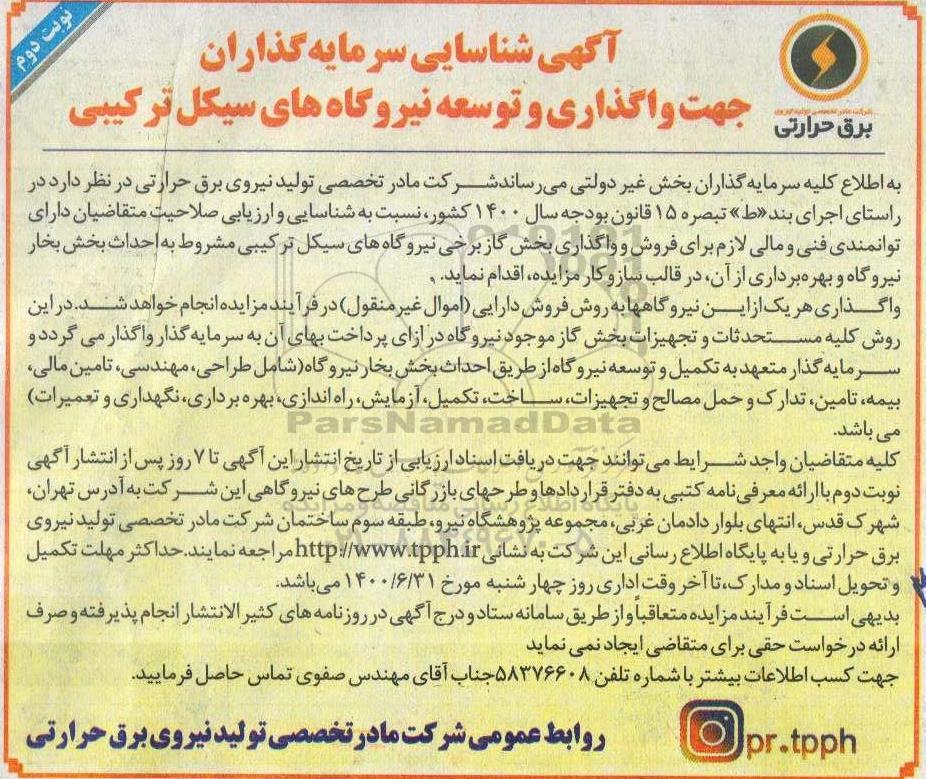 نوبت دوم
آگهی شناسایی سرمایه گذاران
جهت واگذاری و توسعه نیروگاه های سیکل ترکیبی
شرکت مادر تخصصی تولید نیروی
برق حرارتی
به اطلاع کلیه سرمایه گذاران بخش غیر دولتی می‌رساند شرکت مادر تخصصی تولید نیروی برق حرارتی در نظر دارد در
راستای اجرای بند «ط» تبصره ۱۵ قانون بودجه سال ۱۴۰۰ کشور، نسبت به شناسایی و ارزیابی صلاحیت متقاضیان دارای
توانمندی فنی و مالی لازم برای فروش و واگذاری بخش گاز برخی نیروگاه های سیکل ترکیبی مشروط به احداث بخش بخار
نیروگاه و بهره برداری از آن، در قالب سازوکار مزایده، اقدام نماید.
واگذاری هر یک از این نیروگاهها به روش فروش دارایی (اموال غیر منقول) در فرآیند مزایده انجام خواهد شد. در این
روش کلیه مستحدثات و تجهیزات بخش گاز موجود نیروگاه در ازای پرداخت بهای آن به سرمایه گذار واگذار می گردد و
سرمایه گذار متعهد به تکمیل و توسعه نیروگاه از طریق احداث بخش بخار نیروگاه (شامل طراحی، مهندسی، تامین مالی،
بیمه، تامین، تدارک و حمل مصالح و تجهیزات، ساخت، تکمیل، آزمایش، راه اندازی، بهره برداری، نگهداری و تعمیرات)
می باشد.
ParsNamadData
کلیه متقاضیان واجد شرایط می توانند جهت دریافت اسناد ارزیابی از تاریخ انتشار این آگهی تا ۷ روز پس از انتشار آگهی
نوبت دوم با ارائه معرفی نامه کتبی به دفتر قراردادها و طرحهای بازرگانی طرح های نیروگاهی این شرکت به آدرس تهران،
پایگاه اطلاع رسانی مناقصه و مزایده
شهرک قدس، انتهای بلوار دادمان غربی، مجموعه پژوهشگاه نیرو، طبقه سوم ساختمان شرکت مادر تخصصی تولید نیروی
برق حرارتی و یا به پایگاه اطلاع رسانی این شرکت به نشانی http://www.tpph.ir مراجعه نمایند. حداکثر مهلت تکمیل
و تحویل اسناد و مدارک، تا آخر وقت اداری روز چهار شنبه مورخ ۱۴۰۰/۶/۳۱ می باشد.
بدیهی است فرآیند مزایده متعاقباً و از طریق سامانه ستاد و درج آگهی در روزنامه های کثیر الانتشار انجام پذیرفته و صرف
ارائه درخواست حقی برای متقاضی ایجاد نمی نماید
جهت کسب اطلاعات بیشتر با شماره تلفن ۵۸۳۷۶۶۰۸ جناب آقای مهندس صفوی تماس حاصل فرمایید.
pr.tpph
روابط عمومی شرکت مادر تخصصی تولید نیروی برق حرارتی